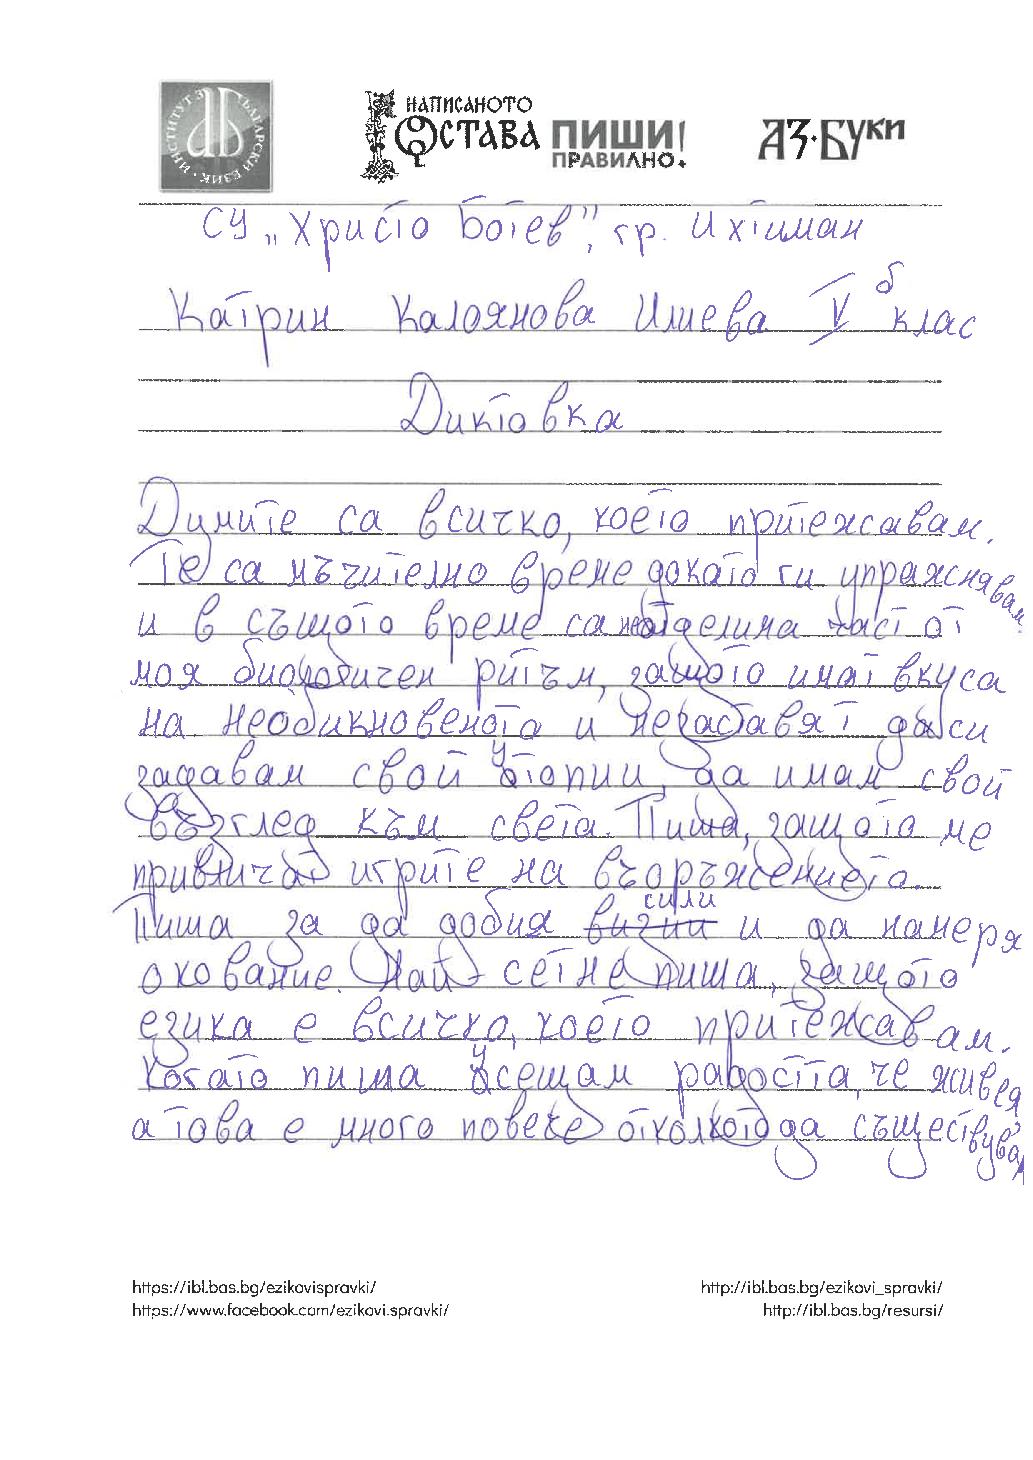 ИНСТИТУТ ЗА БЪЛГАРСКИ ЕЗИК
НАПИСАНОТО
ОСТАВА ПИШИ!
ПРАВИЛНО.
АЗ·БУКИ
СУ „Христо Ботев", гр. Ихтиман
Катрин Калоянова Илиева V б клас
Диктовка
Думите са всичко, което притежавам.
Те са мъчително време докато ги упражнявам
и в същото време са неотделима част от
моя биологичен ритъм, защото имат вкуса
на необикновеното и ме заставят да си
задавам свой утопии, да имам свой
възглед към света. Пиша, защото ме
привличат игрите на въоръжението.
Пиша за да добия сили и да намеря
окование. Най-сетне пиша, защото
езика е всичко, което притежавам.
Когато пиша усещам радостта, че живея
а това е много повече отколкото да съществувам
https://ibl.bas.bg/ezikovispravki/ http://ibl.bas.bg/ezikovi_spravki/
https://www.facebook.com/ezikovi.spravki/ http://ibl.bas.bg/resursi/